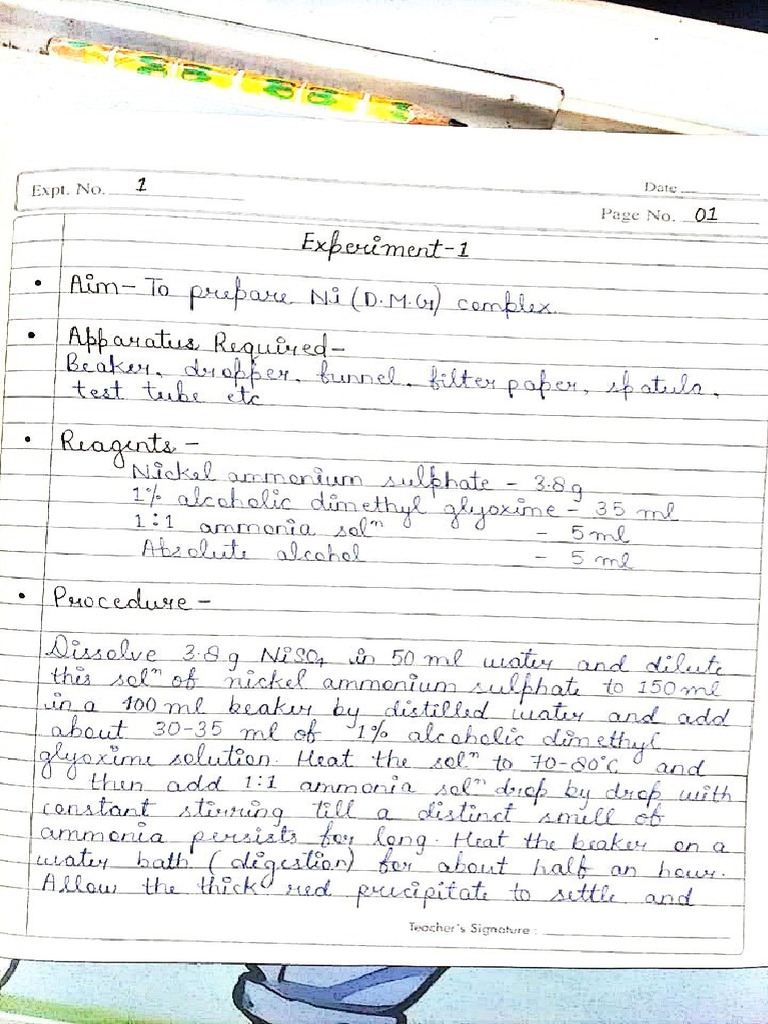 Expt. No. 1
Date
Page No. 01
Experiment-1
• Aim- To prepare Ni (D.M.G) complex.
• Apparatus Required-
Beaker, dropper, funnel, filter paper, spatula,
test tube etc
• Reagents -
Nickel ammonium sulphate - 3.8g
1% alcoholic dimethyl glyoxime - 35 ml
1:1 ammonia solⁿ - 5 ml
Absolute alcohol - 5 ml
• Procedure -
Dissolve 3.8 g NiSO4 in 50 ml water and dilute
this solⁿ of nickel ammonium sulphate to 150 ml
in a 400 ml beaker by distilled water and add
about 30-35 ml of 1% alcoholic dimethyl
glyoxime solution. Heat the solⁿ to 70-80°C and
then add 1:1 ammonia solⁿ drop by drop with
constant stirring till a distinct smell of
ammonia persists for long. Heat the beaker on a
water bath (digestion) for about half an hour.
Allow the thick red precipitate to settle and
Teacher's Signature :